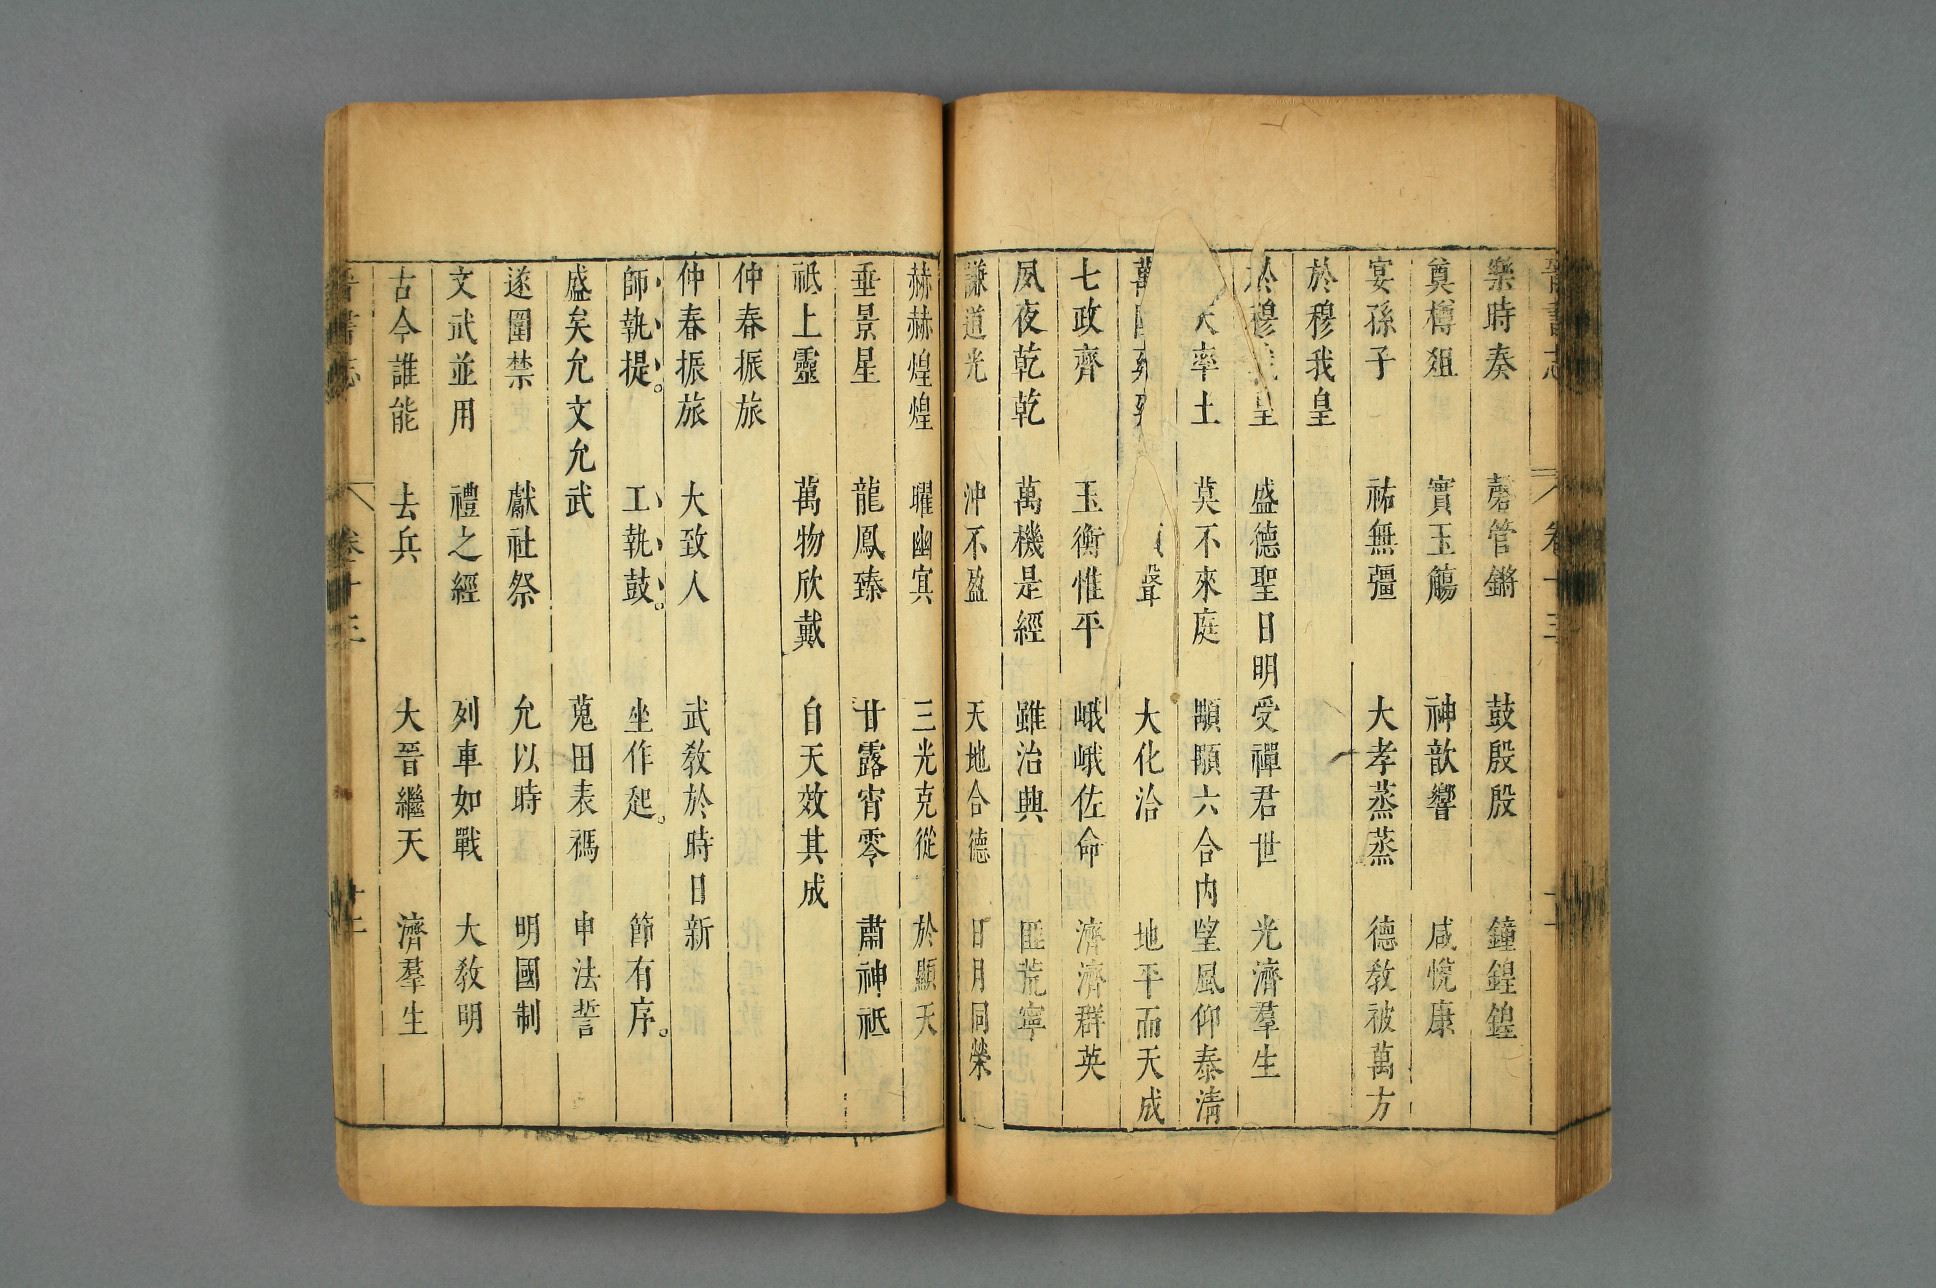 晉書志 卷十三 十一
樂時奏 磬管鏘 鼓殷殷 鐘鍠鍠
奠樽俎 實玉觴 神歆響 咸悅康
宴孫子 祐無疆 大孝蒸蒸 德教被萬方
於穆我皇
於穆 皇 盛德聖日明 受禪君世 光濟羣生
率土 莫不來庭 顒顒六合內 望風仰泰清
萬 聲 大化洽 地平而天成
七政齊 玉衡惟平 峨峨佐命 濟濟群英
夙夜乾乾 萬機是經 雖治興 匪荒寧
謙道光 沖不盈 天地合德 日月同榮
赫赫煌煌 曜幽冥 三光克從 於顯天
垂景星 龍鳳臻 甘露宵零 肅神祇
祇上靈 萬物欣戴 自天效其成
仲春振旅
仲春振旅 大致人 武教於時日新
師執提。 工執鼓。 坐作起。 節有序。
盛矣允文允武 蒐田表禡 申法誓
遂圍禁 獻社祭 允以時 明國制
文武並用 禮之經 列車如戰 大教明
古今誰能 去兵 大晉繼天 濟羣生
晉書志 卷十三 十二